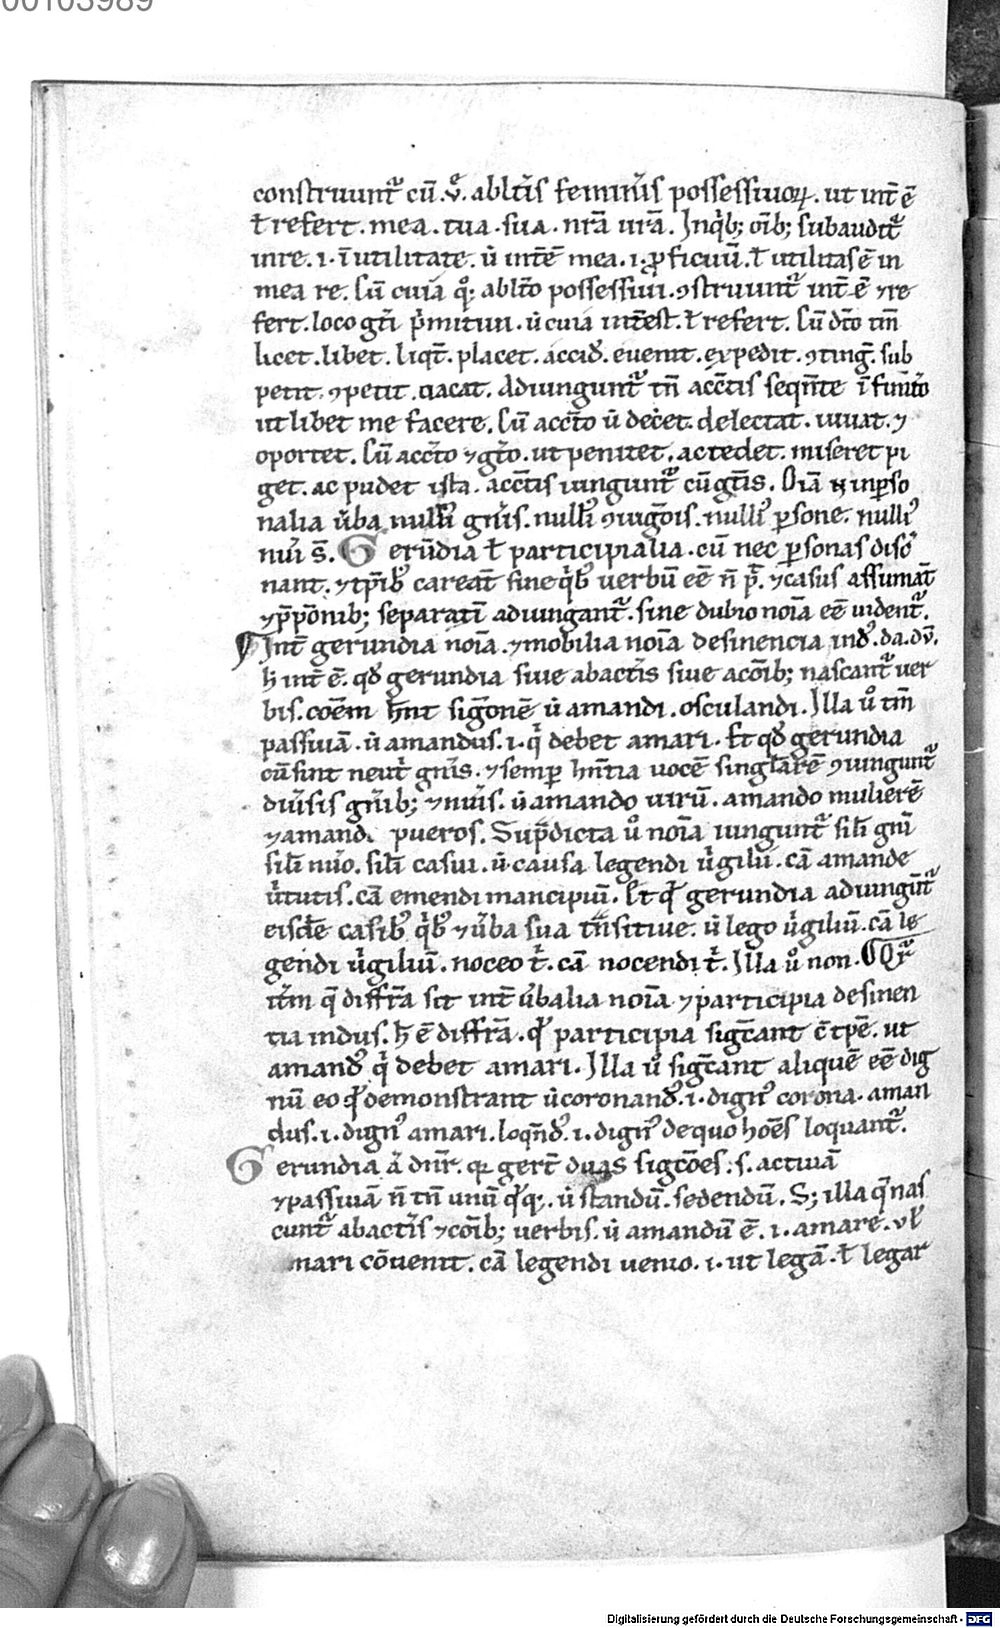 00103989
construunt᷑ cū .v̊. ablt̄is feminīs possessiuoꝝ. ut int̄ ē
ł refert. mea. tua. sua. nr̄a ur̄a. Inqͥb; oīb; subaudit᷑
inre. i. ī utilitate. u̇ int̄ē mea. i. ꝓficuū. ł utilitas ē in
mea re. Cū cuia qͦ; ablt̄o possessiui. ꝯstruunt᷑ int̄ ē ⁊ re
fert. loco gt̄i pͥmitiui. u̇ cuia int̄est. ł refert. Cū dt̄o tm̄
licet. libet. liqt̄. placet. accid̄. euenit. expedit. ꝯtinḡ. sub
petit. ꝯpetit. uacat. Adiungunt᷑ tn̄ acc̄tis seqn̄te īfinito
ut libet me facere. Cū acct̄o u̇ decet. delectat. iuuat. ⁊
oportet. Cū acct̄o ⁊ gt̄o. ut penitet. ac tedet. miseret pi
get. ac pudet ista. acc̄tis iungunt᷑ cū gt̄is. Oīa inp̱so
nalia u̇ba nulli᷒ gn̄is. nulli᷒ ꝯiugōis. nulli᷒ p̱sone. nulli᷒
nūi s̄. Gerūdia ł participialia. cū nec p̱sonas diso
nant. ⁊ tp̄ib᷒ careāt sine qͥb᷒ verbū eē n̄ p̄. ⁊ casus assumāt
⁊ p̄pōnib; separatī adiungant᷑. sine dubio noīa eē uident᷑.
¶ Int̄ gerundia noīa. ⁊ mobilia noīa desinencia in d᷒. da. dū.
h̄ int̄ ē. qd̄ gerundia siue ab actiīs siue a cōib; nascant᷑ uer
bis. cōem hn̄t sigōnē u̇ amandi. osculandi. Illa uͦ tm̄
passiuā. u̇ amandus. i. qͥ debet amari. Et qd̄ gerundia
cū sint neut̄ gn̄is. ⁊ semp̱ hn̄tia uocē singlarē ꝯiungunt᷑
diūsis gn̄ib; ⁊ nūis. u̇ amando uirū. amando mulierē
⁊ amand. pueros. Sup̄dicta uͦ noīa iungunt᷑ sili gn̄i
sili nūo. sili casui. u̇ causa legendi u̇gilii. cā amande
u̇tutis. cā emendi mancipii. Et qd̄ gerundia adiungūt᷑
eisdē casib᷒ qͥb᷒ ⁊ u̇ba sua tn̄sitiue. u̇ lego u̇giliū. cā le
gendi u̇giliū. noceo t̄. cā nocendi t̄. Illa uͦ non. Qr᷑
itm̄ q̄ diffr̄a sit int̄ u̇balia noīa ⁊ participia desinen
tia in dus. h̄ ē diffr̄a. qd̄ participia sigc̄ant c̄ tp̄e. ut
amand᷒ qͥ debet amari. Illa uͦ sigc̄ant aliquē eē dig
nū eo qd̄ demonstrant u̇ coronand᷒. i. dign᷒ corona. aman
dus. i. dign᷒ amari. loqn̄d᷒. i. dign᷒ de quo hoēs loquant᷑.
Gerundia ā dn̄r. qꝛ gert̄ duas sigcōes. s. actiuā
⁊ passiuā n̄ tn̄ unū qd̄q;. u̇ standū. sedendū. S; illa q̄ nas
cunt᷑ ab actiīs ⁊ cōib; uerbis. u̇ amandū ē. i. amare. uł
mari cōuenit. cā legendi uenio. i. ut legā. ł legar
Digitalisierung gefördert durch die Deutsche Forschungsgemeinschaft - DFG